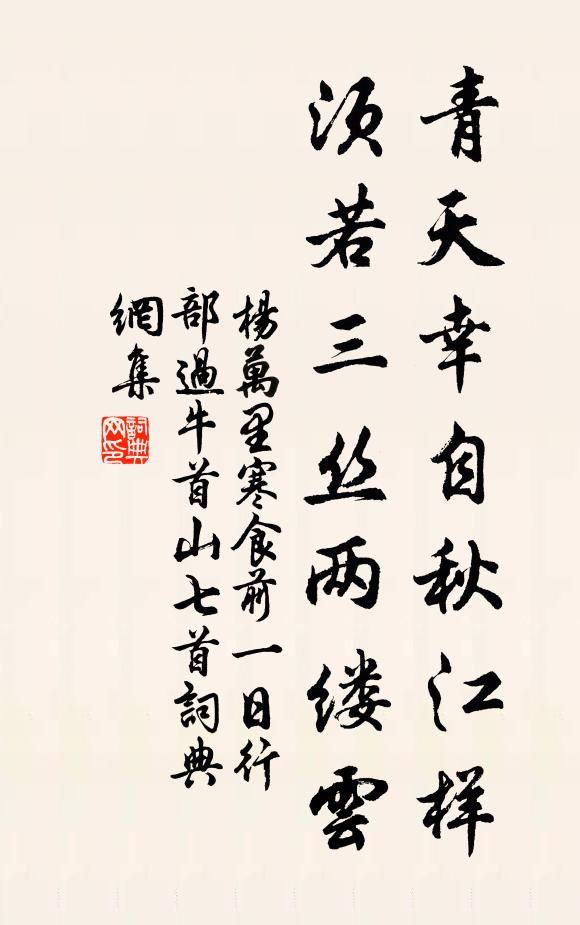 青天幸自秋江样
须若三丝两缕雲
楊萬里寒食前一日行
部過牛首山七首詞典
網集
詞典
网印